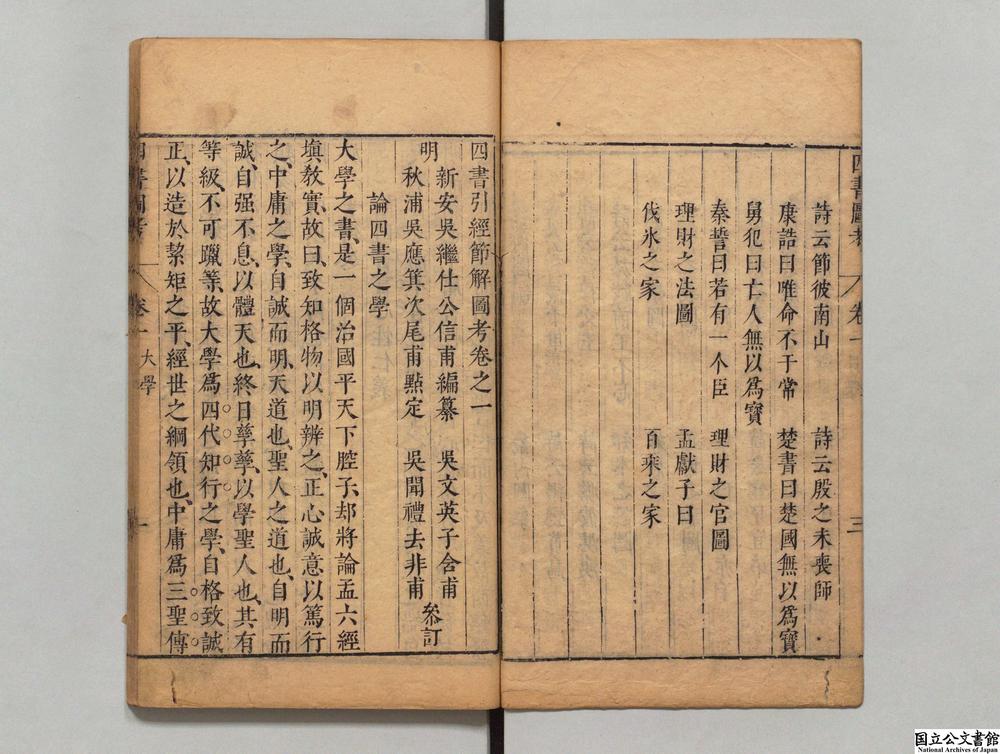 四書圖考 卷一 三
詩云節彼南山 詩云殷之未喪師
康誥曰唯命不于常 楚書曰楚國無以爲寶
舅犯曰亡人無以爲寶
秦誓曰若有一个臣 理財之官圖
理財之法圖 孟獻子曰
伐氷之家 百乘之家
四書引經節解圖考卷之一
明 新安吳繼仕公信甫編纂 吳文英子含甫
秋浦吳應箕次尾甫點定 吳聞禮去非甫 叅訂
論四書之學
大學之書、是一個治國平天下腔子、却將論孟六經
塡教實、故曰、致知格物以明辨之、正心誠意以篤行
之、中庸之學、自誠而明、天道也、聖人之道也、自明而
誠、自强不息、以體天也、終日孳孳、以學聖人也、其有
等級、不可躐等、故大學爲四代知行之學、自格致誠
正、以造於絜矩之平、經世之綱領也、中庸爲三聖傳
四書圖考 卷一 大學 一
国立公文書館
National Archives of Japan